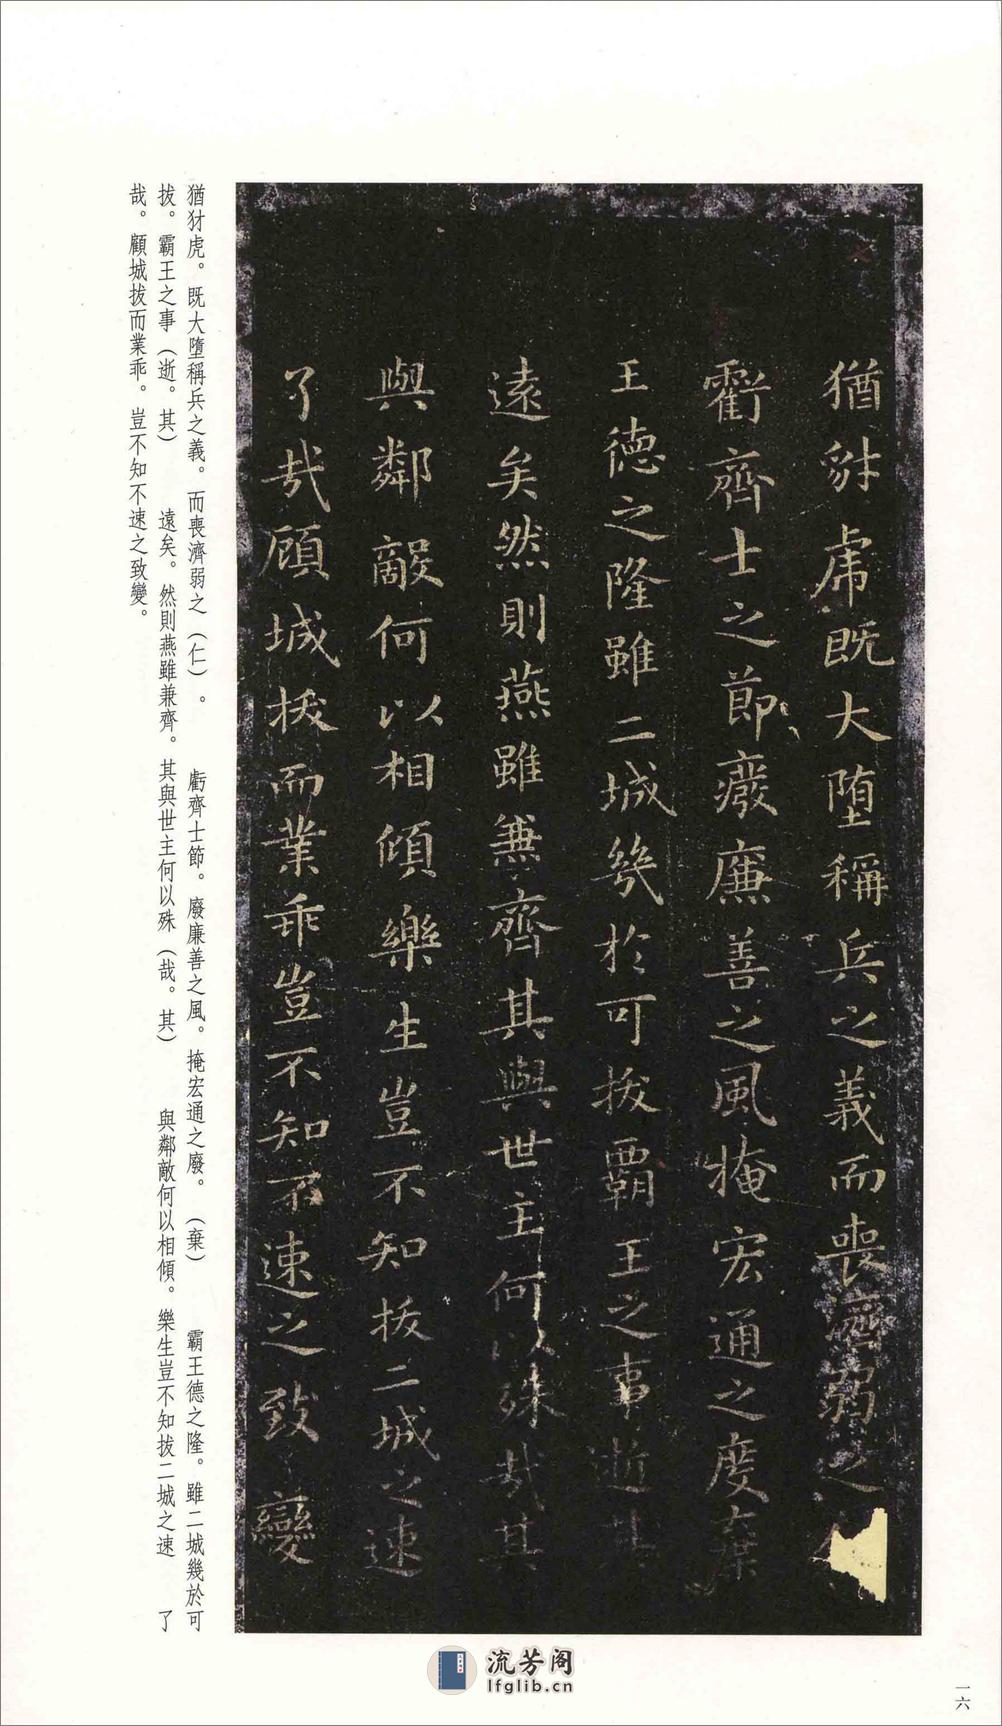 猶豺虎既大堕稱兵之義而喪濟弱之
虧齊士之節癈廉善之風掩宏通之度棄
王德之隆雖二城幾於可拔霸王之事逝其
遠矣然則燕雖兼齊其與世主何以殊哉其
與鄰敵何以相傾樂生豈不知拔二城之速
了哉顧城拔而業乖豈不知不速之致變
猶豺虎。既大墮稱兵之義。而喪濟弱之（仁）。　虧齊士節。廢廉善之風。掩宏通之廢。（棄）　霸王德之隆。雖二城幾於可
拔。霸王之事（逝。其）　遠矣。然則燕雖兼齊。其與世主何以殊（哉。其）　與鄰敵何以相傾。樂生豈不知拔二城之速　了
哉。顧城拔而業乖。豈不知不速之致變。
流芳阁
lfglib.cn
一六